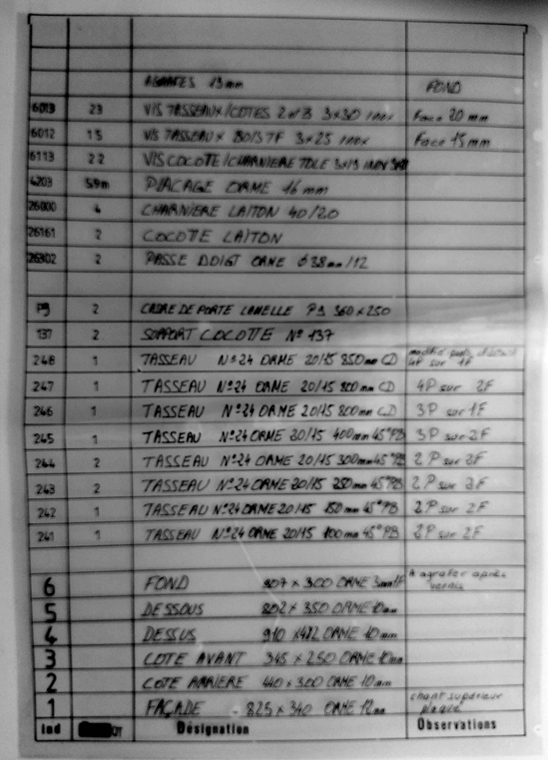 AGRAFES 13mm FOND
6013 23 VIS TASSEAUX/COTES 2 et 3 3x30 inox Face 20 mm
6012 15 VIS TASSEAUX BOIS TF 3x25 inox Face 15 mm
6113 22 VIS COCOTE/CHARNIERE TOLE 3x13 INOX
4203 59m PLACAGE ORME 16 mm
26000 4 CHARNIERE LAITON 40/20
26161 2 COCOTE LAITON
26302 2 PASSE DOIGT ORME 638mm/12
P9 2 CADRE DE PORTE LAMELLE P9 360 x 250
137 2 SUPPORT COCOTTE N° 137
248 1 TASSEAU N°24 ORME 20/15 850mm CD modifier 4P sur 1F
247 1 TASSEAU N°24 ORME 20/15 800mm CD 4P sur 2F
246 1 TASSEAU N°24 ORME 20/15 800mm CD 3P sur 1F
245 1 TASSEAU N°24 ORME 20/15 400mm 45°PB 3P sur 2F
244 2 TASSEAU N°24 ORME 20/15 300mm 45°PB 2P sur 2F
243 2 TASSEAU N°24 ORME 20/15 250mm 45°PB 2P sur 2F
242 1 TASSEAU N°24 ORME 20/15 150mm 45°PB 2P sur 2F
241 1 TASSEAU N°24 ORME 20/15 100mm 45°PB 2P sur 2F
6 FOND 807 x 300 ORME 3mm 1F A agrafer après vernis
5 DESSOUS 802 x 350 ORME 10mm
4 DESSUS 910 x 412 ORME 10mm
3 COTE AVANT 345 x 250 ORME 10mm
2 COTE ARRIERE 440 x 300 ORME 10mm
1 FAÇADE - 825 x 340 ORME 12mm chant supérieur plaqué
Ind Désignation Observations